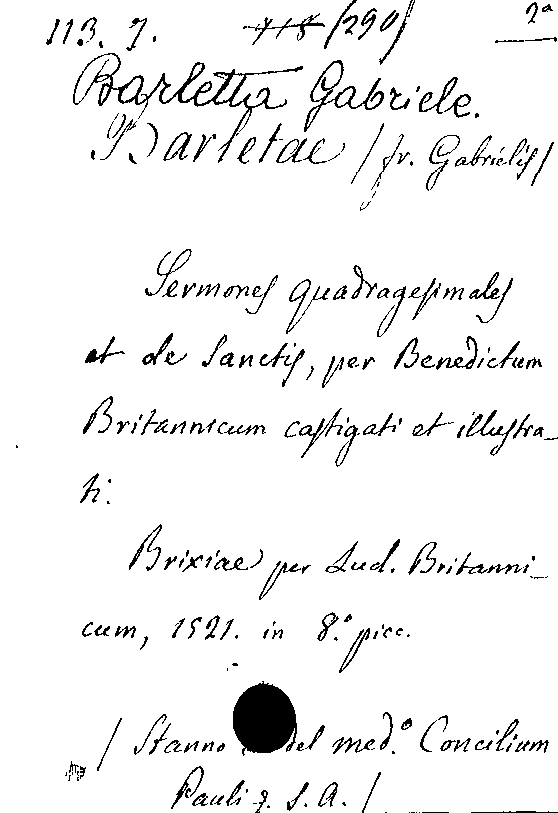 113. 7. 718 (290) 2ª
Barletta Gabriele.
Barletae / fr. Gabrielis /
Sermones quadragesimales
et de Sanctis, per Benedictum
Britannicum castigati et illustra_
ti.
Brixiae per Lud. Britanni_
cum, 1521. in 8.º picc.
/ Stanno del med.º Concilium
Pauli 3. S. A. /